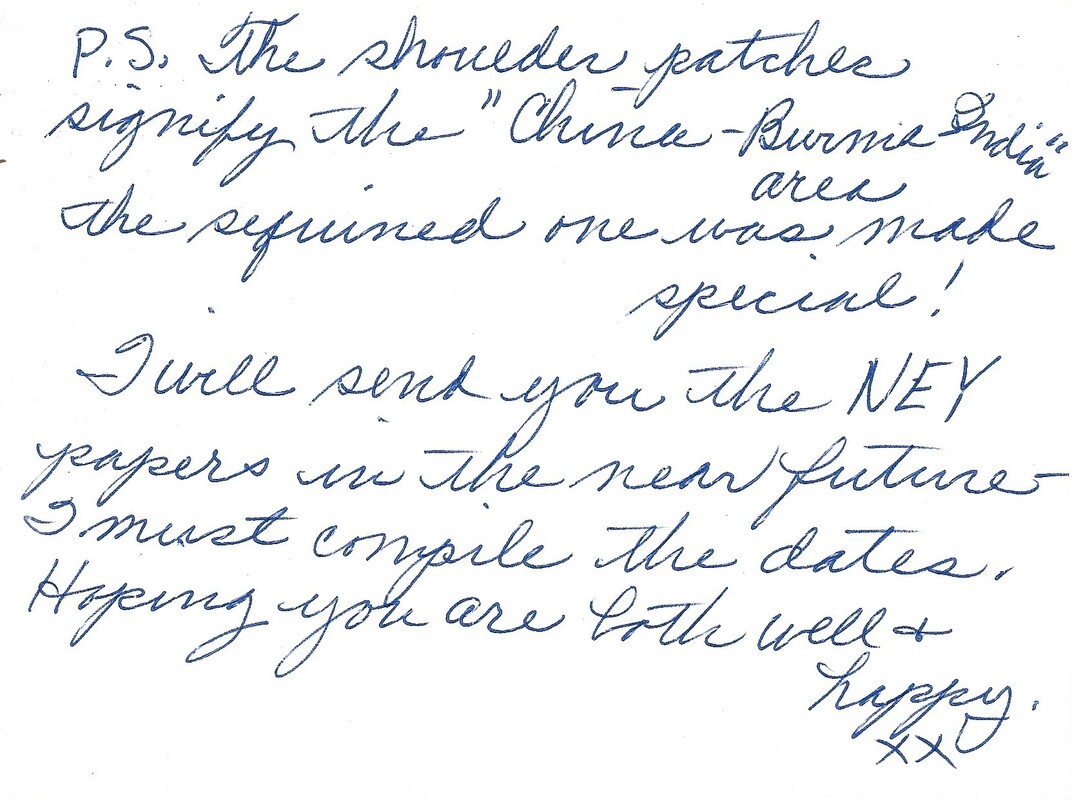 P.S. The shoulder patches
signify the "China-Burma India"
area
the sequined one was made
special!
I will send you the NEY
papers in the near future-
I must compile the dates.
Hoping you are both well &
happy.
XX